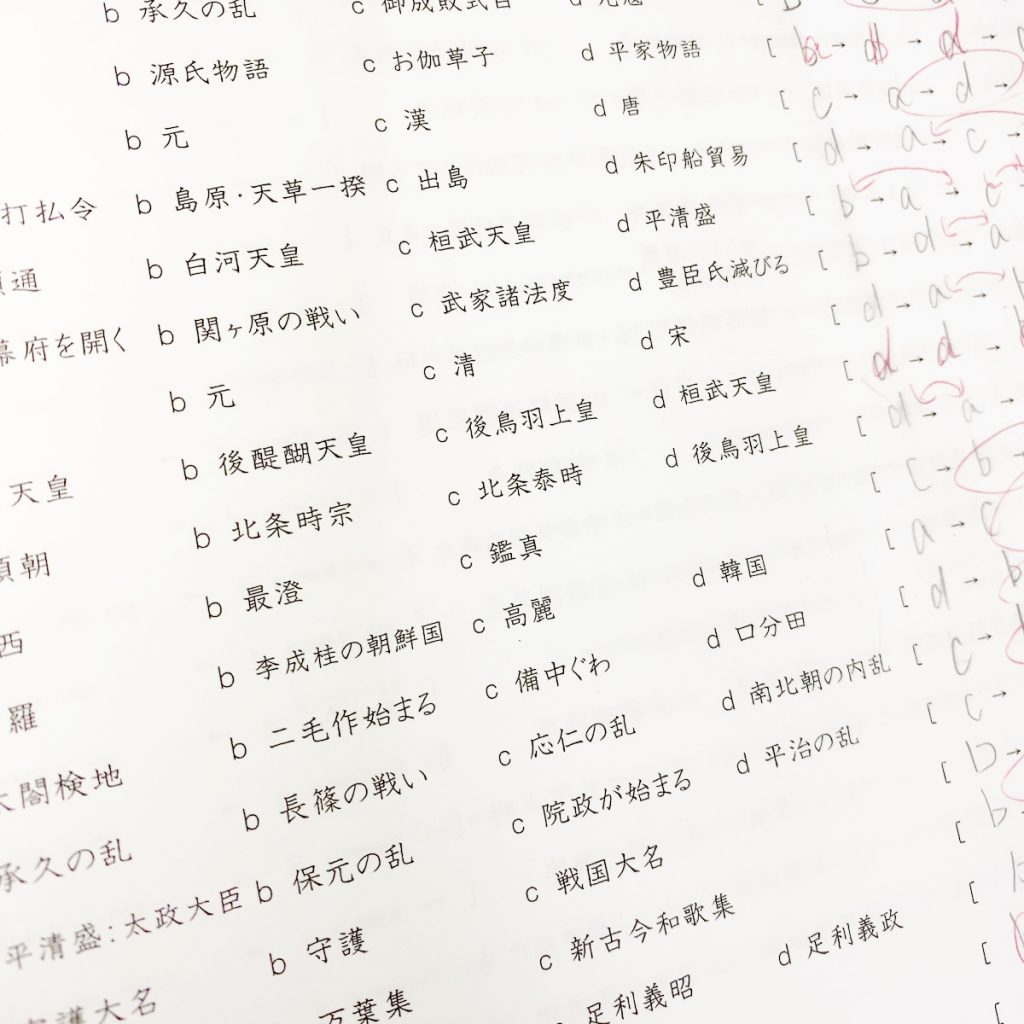 b 承久の乱 c 御成敗式目
b 源氏物語 c お伽草子 d 平家物語 [
b 元 c 漢 d 唐 [ c → a → d →
打払令 b 島原・天草一揆 c 出島 d 朱印船貿易 [ d → a → c →
通 b 白河天皇 c 桓武天皇 d 平清盛 [ b → a → c
幕府を開く b 関ヶ原の戦い c 武家諸法度 d 豊臣氏滅びる [ b → d → a
b 元 c 清 d 宋 [ d → a → b
天皇 b 後醍醐天皇 c 後鳥羽上皇 d 桓武天皇 [ d → d →
頼朝 b 北条時宗 c 北条泰時 d 後鳥羽上皇 [ d → a →
西 b 最澄 c 鑑真 [ c → b →
羅 b 李成桂の朝鮮国 c 高麗 d 韓国 [ a → c
太閤検地 b 二毛作始まる c 備中ぐわ d 口分田 [ d → b
承久の乱 b 長篠の戦い c 応仁の乱 d 南北朝の内乱 [ c →
平清盛:太政大臣 b 保元の乱 c 院政が始まる d 平治の乱 [ c →
守護大名 b 守護 c 戦国大名 [ b →
万葉集 c 新古今和歌集 [ b
足利義昭 d 足利義政 [